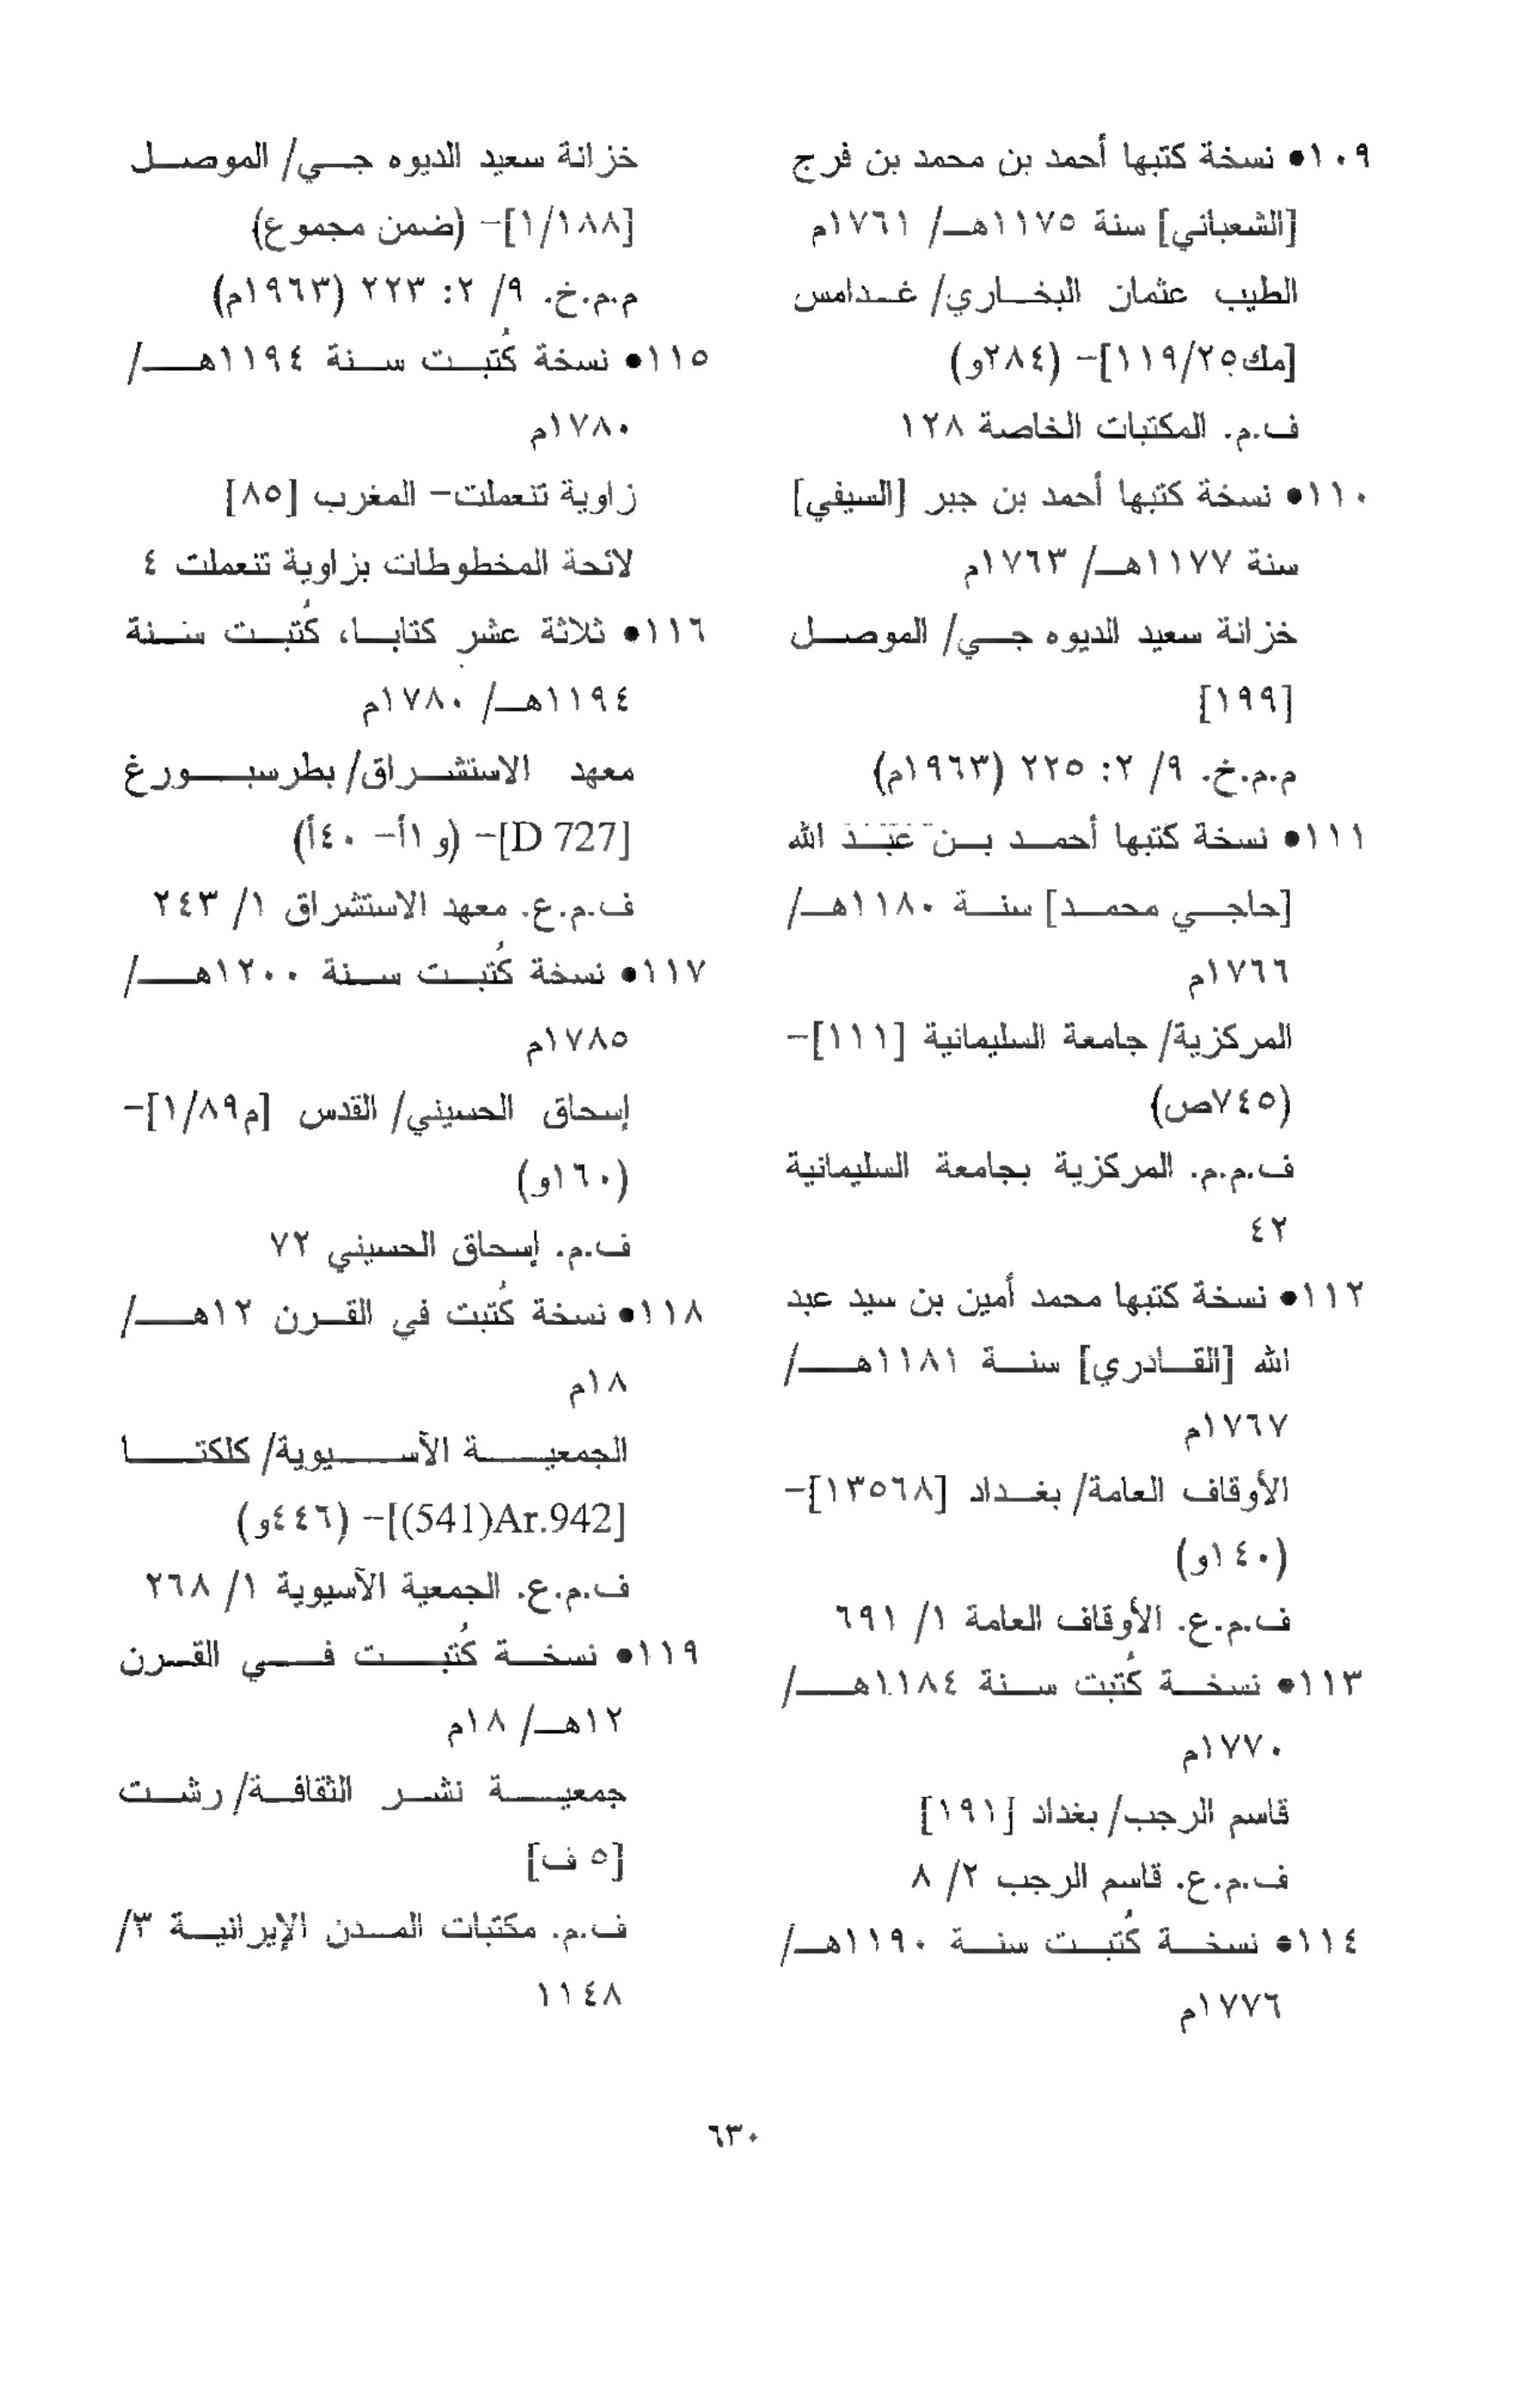 ١٠٩• نسخة كتبها أحمد بن محمد بن فرج
[الشعباني] سنة ١١٧٥هـ/ ١٧٦١م
الطيب عثمان البخاري/ غدامس
[مك١١٩/٢٥]- (٢٨٤و)
ف.م. المكتبات الخاصة ١٢٨
١١٠• نسخة كتبها أحمد بن جبر [السيفي]
سنة ١١٧٧هـ/ ١٧٦٣م
خزانة سعيد الديوه جي/ الموصل
[١٩٩]
م.م.خ. ٩/ ٢: ٢٢٥ (١٩٦٣م)
١١١• نسخة كتبها أحمد بن عبد الله
[حاجي محمد] سنة ١١٨٠هـ/
١٧٦٦م
المركزية/ جامعة السليمانية [١١١]-
(٧٤٥ص)
ف.م.م. المركزية بجامعة السليمانية
٤٢
١١٢• نسخة كتبها محمد أمين بن سيد عبد
الله [القادري] سنة ١١٨١هـ/
١٧٦٧م
الأوقاف العامة/ بغداد [١٣٥٦٨]-
(١٤٠و)
ف.م.ع. الأوقاف العامة ١/ ٦٩١
١١٣• نسخة كُتبت سنة ١١٨٤هـ/
١٧٧٠م
قاسم الرجب/ بغداد [١٩١]
ف.م.ع. قاسم الرجب ٢/ ٨
١١٤• نسخة كُتبت سنة ١١٩٠هـ/
١٧٧٦م
خزانة سعيد الديوه جي/ الموصل
[١/١٨٨]- (ضمن مجموع)
م.م.خ. ٩/ ٢: ٢٢٣ (١٩٦٣م)
١١٥• نسخة كُتبت سنة ١١٩٤هـ/
١٧٨٠م
زاوية تنعملت- المغرب [٨٥]
لائحة المخطوطات بزاوية تنعملت ٤
١١٦• ثلاثة عشر كتابا، كُتبت سنة
١١٩٤هـ/ ١٧٨٠م
معهد الاستشراق/ بطرسبورغ
[D 727]- (و ١أ- ٤٠أ)
ف.م.ع. معهد الاستشراق ١/ ٢٤٣
١١٧• نسخة كُتبت سنة ١٢٠٠هـ/
١٧٨٥م
إسحاق الحسيني/ القدس [م١/٨٩]-
(١٦٠و)
ف.م. إسحاق الحسيني ٧٢
١١٨• نسخة كُتبت في القرن ١٢هـ/
١٨م
الجمعية الآسيوية/ كلكتا
[Ar.942(541)]- (٤٤٦و)
ف.م.ع. الجمعية الآسيوية ١/ ٢٦٨
١١٩• نسخة كُتبت في القرن
١٢هـ/ ١٨م
جمعية نشر الثقافة/ رشت
[٥ ف]
ف.م. مكتبات المدن الإيرانية ٣/
١١٤٨
٦٣٠